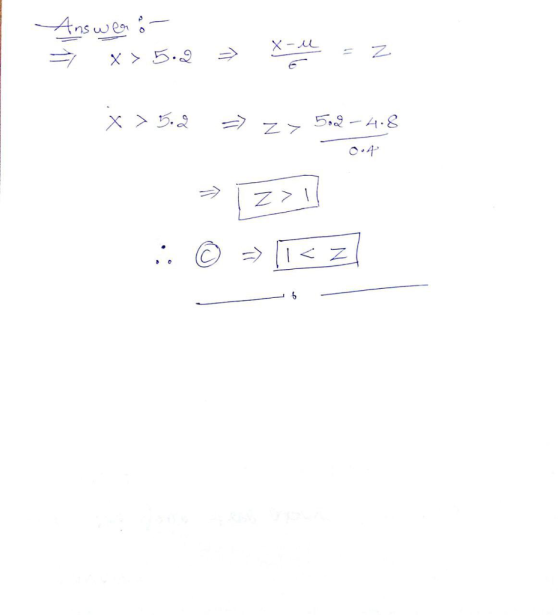 Answer :-
⇒ x > 5.2 ⇒ x-μ/σ = Z
x > 5.2 ⇒ Z > 5.2-4.8/0.4
⇒ Z > 1
∴ ⓒ ⇒ 1 < Z